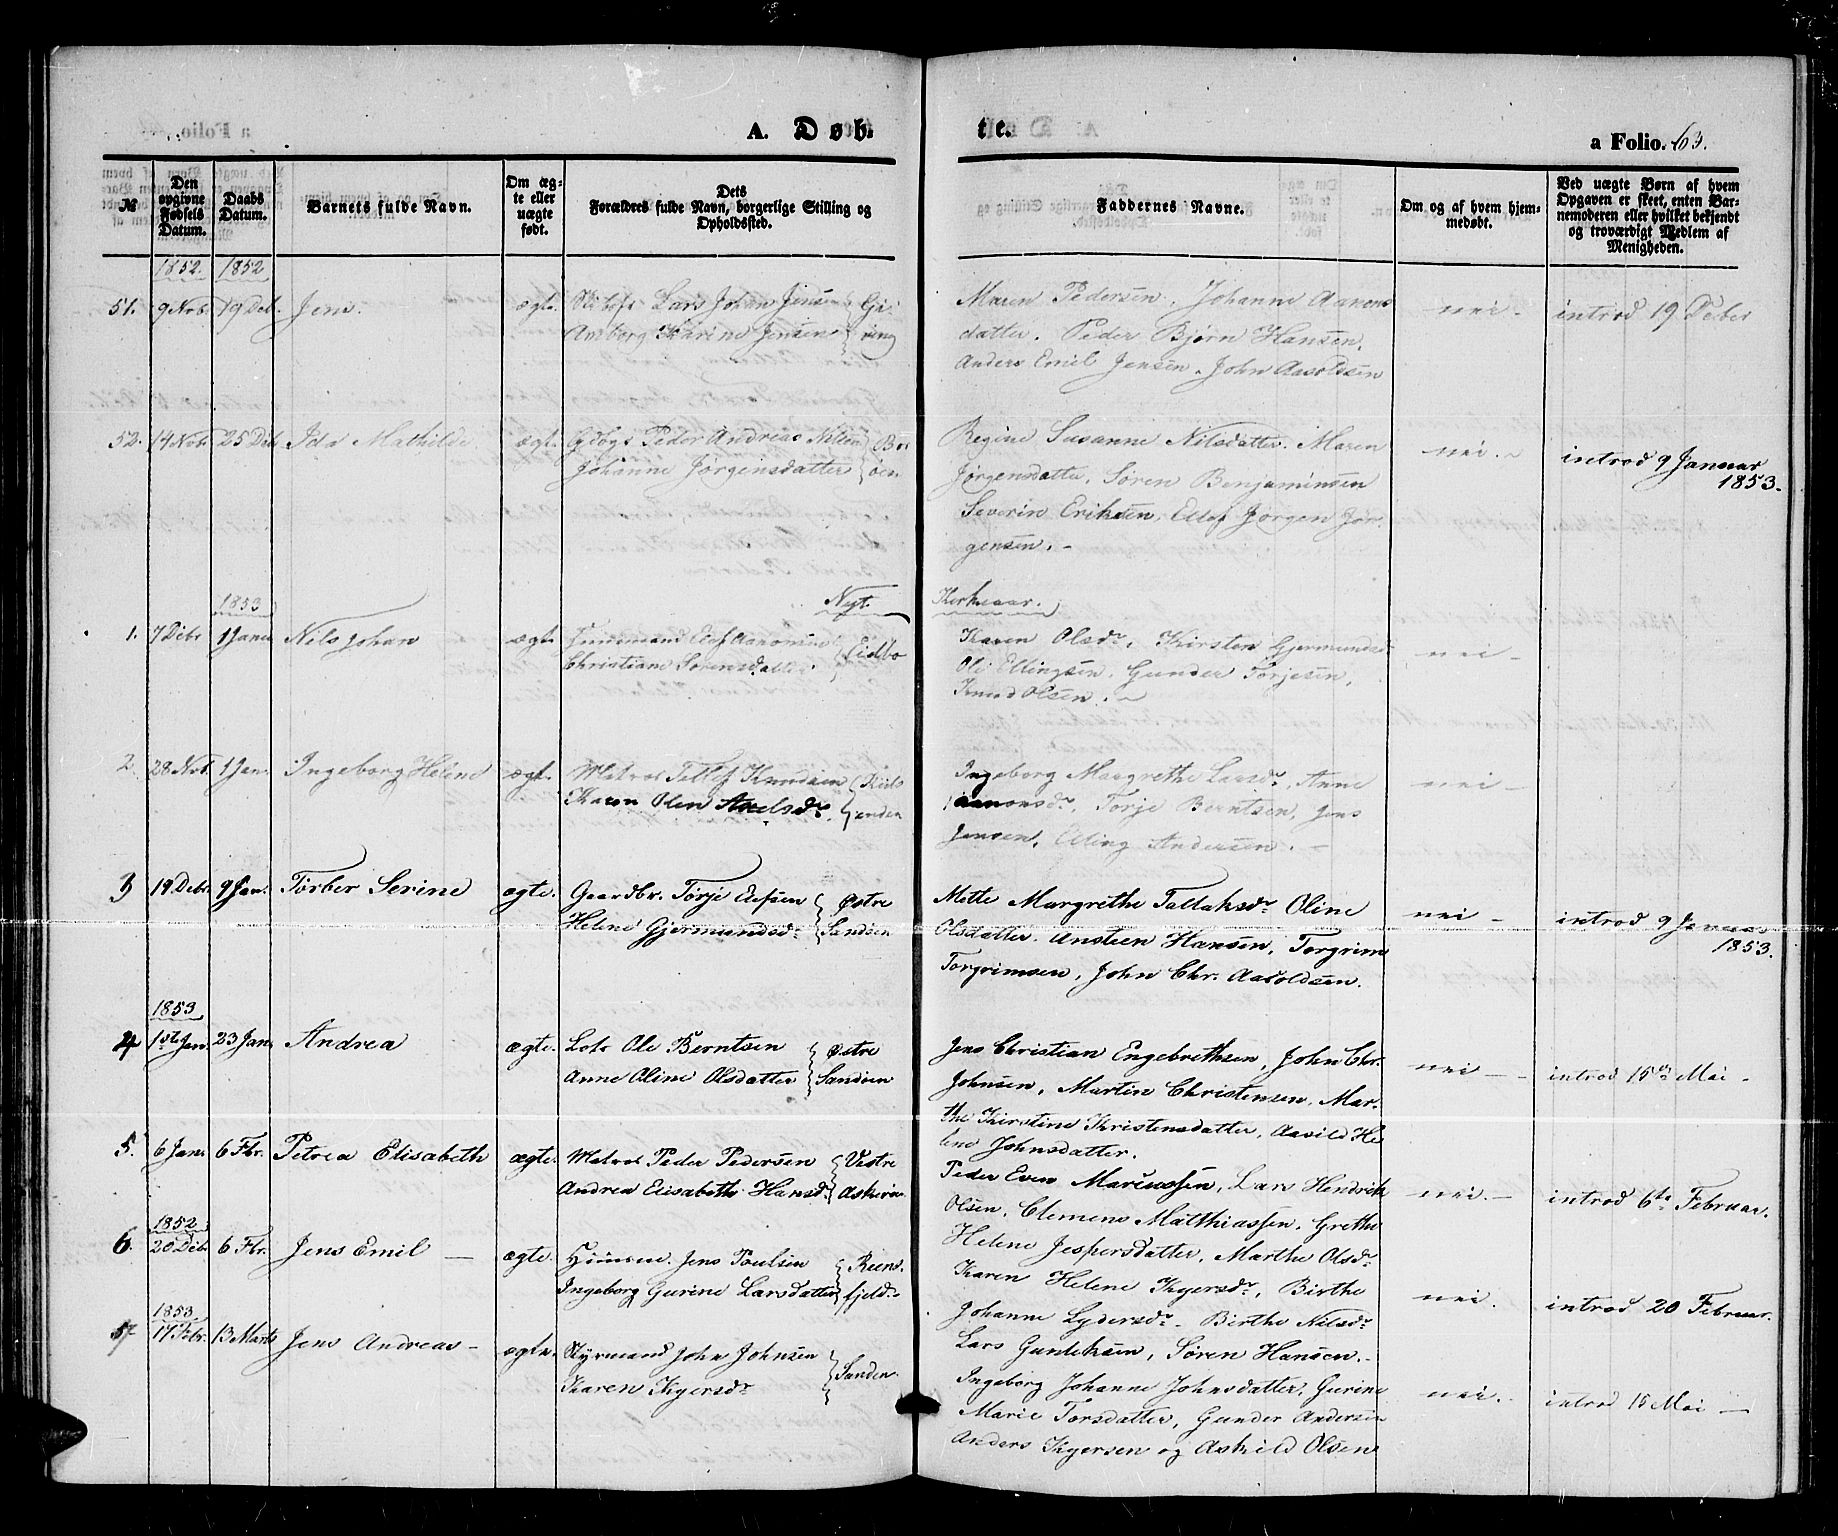 A. Døb-
te.
a Folio. 63.
№
Den opgivne Fødsels Datum.
Daabs Datum.
Barnets fulde Navn.
Om ægte eller uægte født.
Dets
Forældres fulde Navn, borgerlige Stilling og
Opholdssted.
Faddernes Navne.
Om og af hvem hjemmedøbt.
Ved uægte Børn af hvem
Opgaven er skeet, enten Barnemoderen eller hvilket bekjendt
og troværdigt Medlem af
Menigheden.
1852. 1852
51. 9 Nob. 19 Deb. Jens. ægte. Lars Johan Jensen
Karine Jensen
Maren Pedersen, Johanne Aanons
datter. Peder Bjørn Hansen,
Anders Emil Jensen, John Aasoldsen
nei - introd 19 Decber
52. 14 Nob. 25 Deb Ida Mathilde ægt. Peder Andreas Nilsen
Johanne Jørgensdatter
Regine Susanne Nilsdatter. Maren
Jørgensdatter, Søren Benjaminsen
Severin Eriksen, Ellef Jørgen Jør-
gensen. -
nei. - introd 9 Januar
1853.
Nyt. Kirkeaar.
1853
1. 7 Debr 1 Janu Nils Johan ægte Aanonsen
Christiane Sørensdatter. Eidbo
Karen Olsdr, Kirsten Gjermundsd
Ole Ellingsen, Gunder Torjesen,
Knud Olsen. -
nei -
2 28 Nob. 1 Jan. Ingeborg Helene ægt. Matros Tallef Knudsen
Karen Olea Axelsdr.
Ingeborg Margrethe Larsdr, Anne
Aanonsdr, Torje Berntsen, Jens
Jensen, Elling Andersen. -
nei -
3 19 Debr 9 Jan. Torber Serine ægte. Gaardbr. Torje Elefsen Østre
Helene Gjermundsdr Sandøen
Mette Margrethe Tallaksdr Oline
Olsdatter. Ansteen Hansen, Torgrim
Torgrimsen, John Chr. Aasoldsen.
nei - introd 9 Januar
1853.
1853
4 1ste Jan. 23 Jan. Andrea ægte. Lods Ole Berntsen Østre
Anne Oline Olsdatter Sandøen
Jens Christian Engebrethsen, John Chr.
Johnsen, Martin Christensen, Mar-
the Kirstine Kristensdatter, Aasild He-
lene Johnsdatter.
nei - introd 15de Mai -
5. 6 Jan. 6 Fbr. Petrea Elisabeth ægte. Matros Peder Pedersen Vestre
Andrea Elisabeth Hansdr
Peder Even Mariussen, Lars Hendrik
Olsen, Clemens Matthiassen, Grethe
Helene Jespersdatter, Marthe Olsdr
nei. - introd 6te Februar.
1852
6. 20 Deb. 6 Fbr. Jens Emil - ægte. Jens Poulsen
Ingeborg Gurine Larsdatter fjeld. -
Karen Helene Kyersdr, Birthe
Johanne Lydersdr. Birthe Nilsdr
Lars Guntehsen, Søren Hansen. -
nei. introd 20 Februar.
1853
7 17 Febr. 13 Marts Jens Andreas - ægte. Styrmand John Johnsen
Karen Kyersdr Sanden.
Ingeborg Johanne Johnsdatter, Gurine
Marie Torsdatter, Gunder Andersen
Anders Kyersen og Askild Olsen
nei. introd 15 Mai -